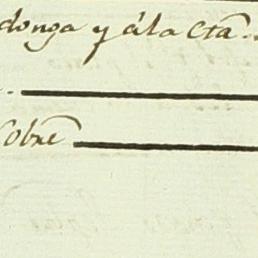 donga y á la Cta..
Cobre